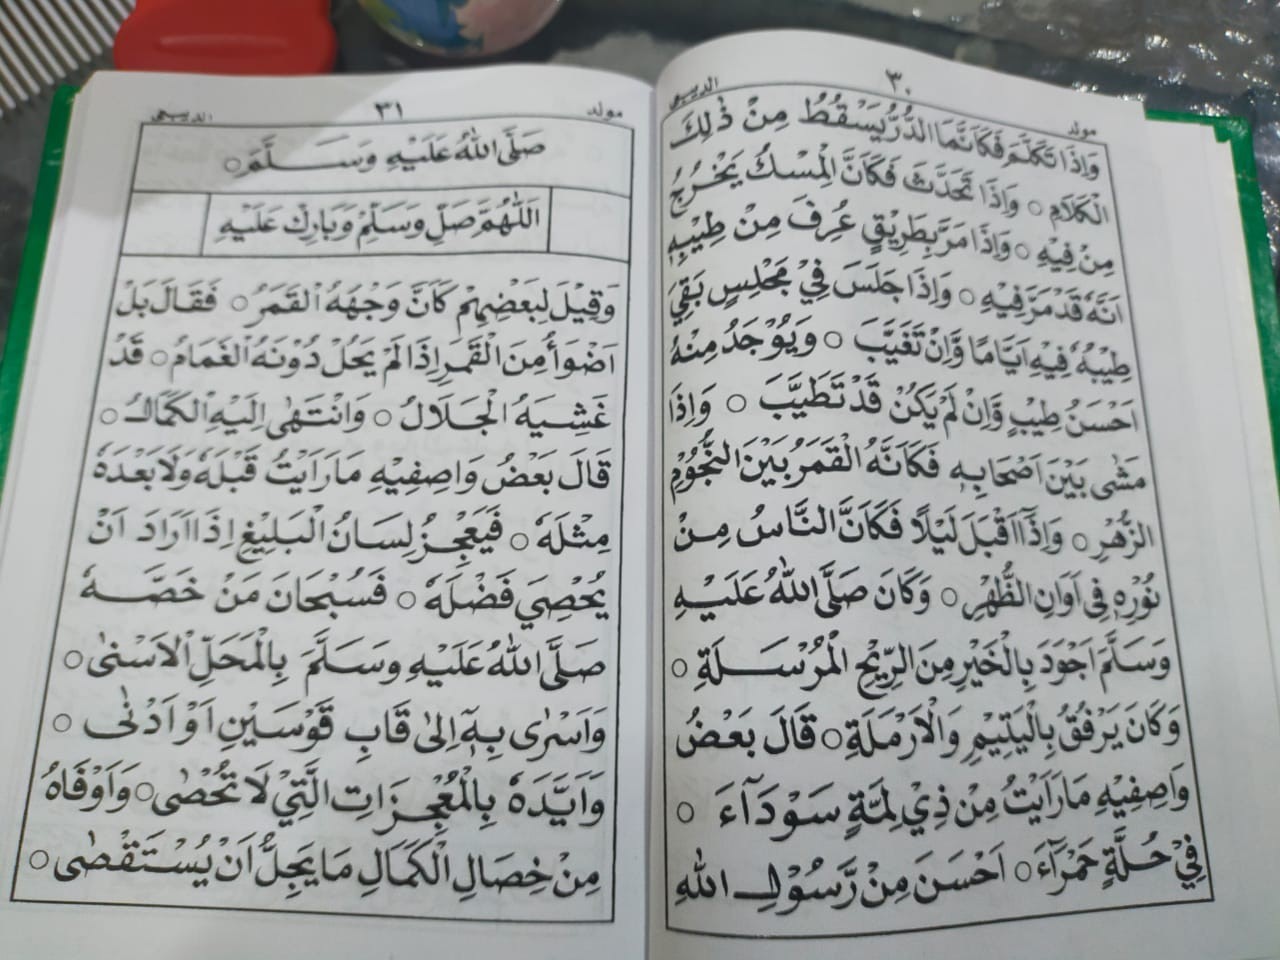 مولد
٣٠
الديبعي
وَاِذَا تَكَلَّمَ فَكَاَنَّمَا الدُّرُّ يَسْقُطُ مِنْ ذٰلِكَ
الْكَلَامِ ○ وَاِذَا تَحَدَّثَ فَكَاَنَّ الْمِسْكَ يَخْرُجُ
مِنْ فِيْهِ ○ وَاِذَا مَرَّ بِطَرِيْقٍ عُرِفَ مِنْ طِيْبِهٖ
اَنَّهٗ قَدْ مَرَّ فِيْهِ ○ وَاِذَا جَلَسَ فِيْ مَجْلِسٍ بَقِيَ
طِيْبُهٗ فِيْهِ اَيَّامًا وَّاِنْ تَغَيَّبَ ○ وَيُوْجَدُ مِنْهُ
اَحْسَنُ طِيْبٍ وَّاِنْ لَمْ يَكُنْ قَدْ تَطَيَّبَ ○ وَاِذَا
مَشٰى بَيْنَ اَصْحَابِهٖ فَكَاَنَّهُ الْقَمَرُ بَيْنَ النُّجُوْمِ
الزُّهْرِ ○ وَاِذَا اَقْبَلَ لَيْلًا فَكَاَنَّ النَّاسُ مِنْ
نُوْرِهٖ فِي اَوَانِ الظُّهْرِ ○ وَكَانَ صَلَّى اللهُ عَلَيْهِ
وَسَلَّمَ اَجْوَدَ بِالْخَيْرِ مِنَ الرِّيْحِ الْمُرْسَلَةِ ○
وَكَانَ يَرْفُقُ بِالْيَتِيْمِ وَالْاَرْمَلَةِ ○ قَالَ بَعْضُ
وَاصِفِيْهِ مَا رَاَيْتُ مِنْ ذِيْ لِمَّةٍ سَوْدَآءَ ○
فِيْ حُلَّةٍ حَمْرَآءَ ○ اَحْسَنَ مِنْ رَّسُوْلِ اللهِ
مولد
٣١
الديبعي
صَلَّى اللهُ عَلَيْهِ وَسَلَّمَ ○
اَللّٰهُمَّ صَلِّ وَسَلِّمْ وَبَارِكْ عَلَيْهِ
وَقِيْلَ لِبَعْضِهِمْ كَاَنَّ وَجْهَهُ الْقَمَرُ ○ فَقَالَ بَلْ
اَضْوَأُ مِنَ الْقَمَرِ اِذَا لَمْ يَحُلْ دُوْنَهُ الْغَمَامُ ○ قَدْ
غَشِيَهُ الْجَلَالُ ○ وَانْتَهٰى اِلَيْهِ الْكَمَالُ ○
قَالَ بَعْضُ وَاصِفِيْهِ مَا رَاَيْتُ قَبْلَهٗ وَلَا بَعْدَهٗ
مِثْلَهٗ ○ فَيَعْجِزُ لِسَانُ الْبَلِيْغِ اِذَا اَرَادَ اَنْ
يُحْصِيَ فَضْلَهٗ ○ فَسُبْحَانَ مَنْ خَصَّهٗ
صَلَّى اللهُ عَلَيْهِ وَسَلَّمَ بِالْمَحَلِّ الْاَسْنٰى ○
وَاَسْرٰى بِهٖٓ اِلٰى قَابِ قَوْسَيْنِ اَوْ اَدْنٰى ○
وَاَيَّدَهٗ بِالْمُعْجِزَاتِ الَّتِيْ لَا تُحْصٰى ○ وَاَوْفَاهُ
مِنْ خِصَالِ الْكَمَالِ مَا يَجِلُّ اَنْ يُسْتَقْصٰى ○